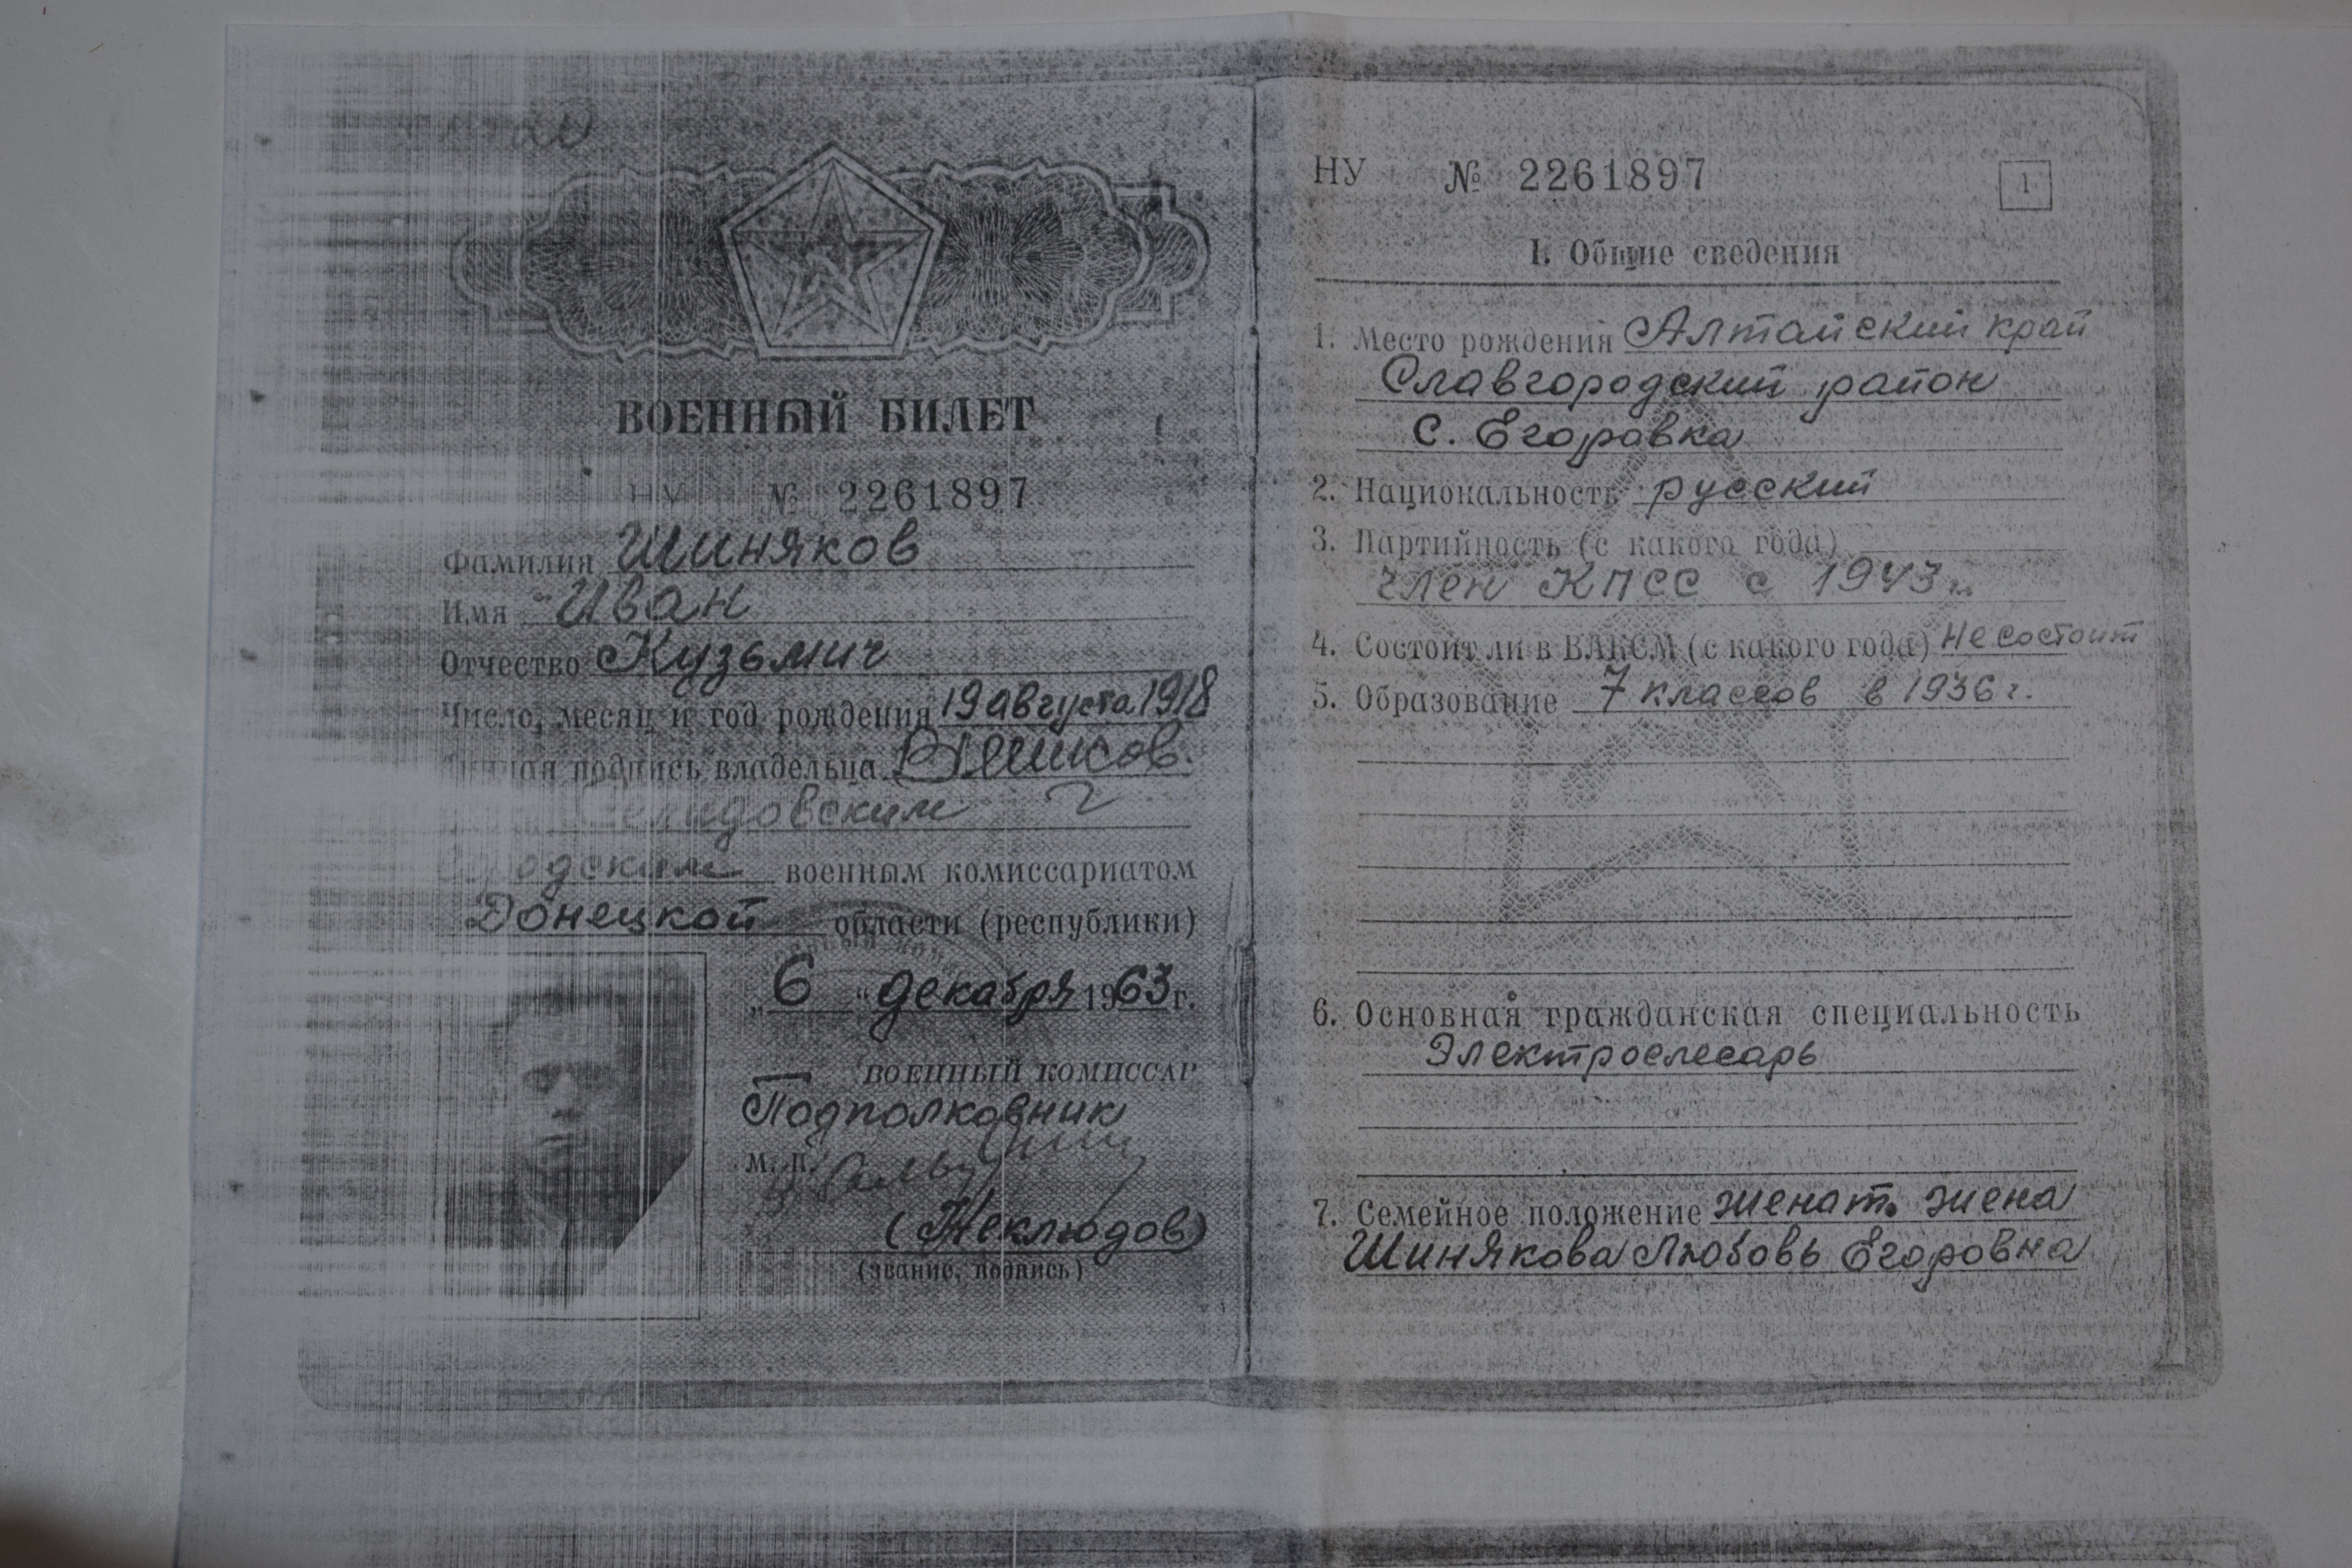 ВОЕННЫЙ БИЛЕТ
НУ № 2261897
Фамилия Шиняков
Имя Иван
Отчество Кузьмич
Число, месяц и год рождения 19 августа 1918
подпись владельца
Селидовским
Городским военным комиссариатом
Донецкой области (республики)
„6“ декабря 1963 г.
ВОЕННЫЙ КОМИССАР
Подполковник
М. П.
(Неклюдов)
(звание, подпись)
НУ № 2261897
1
I. Общие сведения
1. Место рождения Алтайский край
Славгородский район
с. Егоровка
2. Национальность русский
3. Партийность (с какого года)
член КПСС с 1943 г.
4. Состоит ли в ВЛКСМ (с какого года) не состоит
5. Образование 7 классов в 1936 г.
6. Основная гражданская специальность
Электрослесарь
7. Семейное положение женат. жена
Шинякова Любовь Егоровна